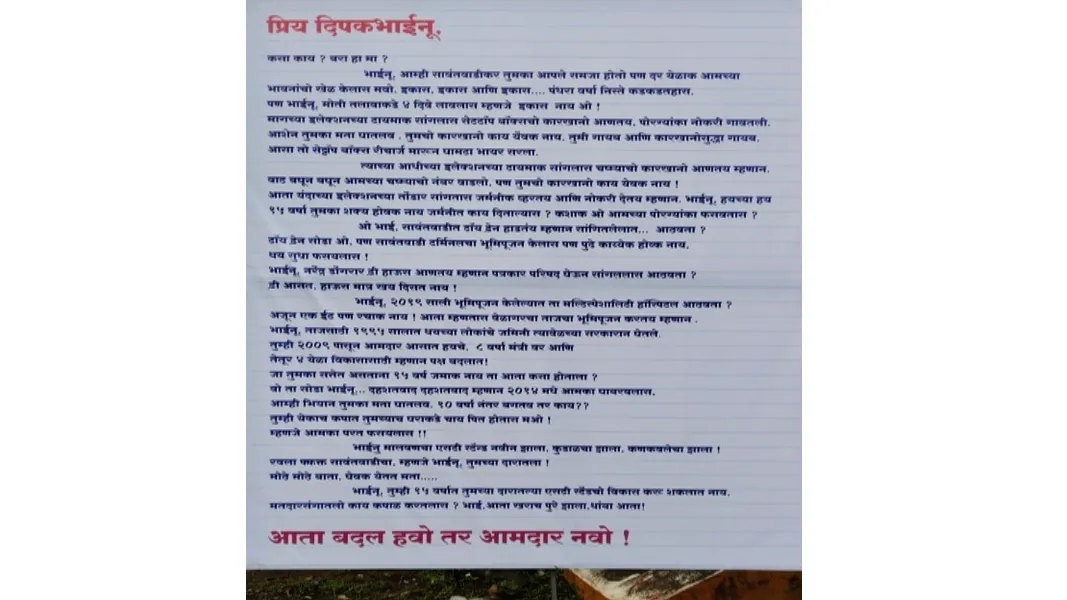 प्रिय दिपकभाईनू,
कसा काय ? बरा हा मा ?
भाईनू, आम्ही सावंतवाडीकर तुमका आपले समजा होतो पण दर येळाक आमच्या
भावनांचो खेळ केलास मवो. इकास, इकास आणि इकास.... पंधरा वर्षा निस्ते कडकडतहास.
पण भाईनू, मोती तलावाकडे ४ दिवे लावलास म्हणजे इकास नाय ओ !
मागच्या इलेक्शनच्या टायमाक सांगलास सेटटॉप बॉक्सचो कारखानो आणतय, पोरग्यांका नोकरी गावतली.
आशेन तुमका मता घातलव . तुमचो कारखानो काय येवक नाय. तुमी गायब आणि कारखानोसुद्धा गायब.
आसा तो सेट्टॉप बॉक्स रीचार्ज मारून घामटा भायर सरला.
त्याच्या आधीच्या इलेक्शनच्या टायमाक सांगलास चष्म्याचो कारखानो आणतय म्हणान.
वाट बघून बघून आमच्या चष्म्याचो नंबर वाढलो, पण तुमचो कारखानो काय येवक नाय !
आता यंदाच्या इलेक्शनच्या तोंडार सांगतास जर्मनीक व्हरतय आणि नोकरी देतय म्हणान. भाईनू, हयच्या हय
१५ वर्षा तुमका शक्य होवक नाय जर्मनीत काय दिताल्यास ? कशाक ओ आमच्या पोरग्यांका फसवतास ?
ओ भाई, सावंतवाडीत टॉय ट्रेन हाडतंय म्हणान सांगितलेलात... आठवता ?
टॉय ट्रेन सोडा ओ, पण सावंतवाडी टर्मिनलचा भूमिपूजन केलास पण पुढे काय्येक होवक नाय,
थय सुधा फसयलास !
भाईनू, नरेंद्र डोंगरार ट्री हाऊस आणतय म्हणान पत्रकार परिषद घेऊन सांगललास आठवता ?
ट्री आसत, हाऊस मात्र खय दिसत नाय !
भाईनू, २०१९ साली भूमिपूजन केलेल्यात ता मल्टिस्पेशालिटी हॉस्पिटल आठवता ?
अजून एक ईट पण रचाक नाय ! आता म्हणतास वेळागरचा ताजचा भूमिपूजन करतय म्हणान .
भाईनू, ताजसाठी १९९५ सालात थयच्या लोकांचे जमिनी त्यावेळच्या सरकारान घेतले.
तुम्ही २००९ पासून आमदार आसात हयचे, ८ वर्षा मंत्री वर आणि
तेतूर ४ येळा विकासासाठी म्हणान पक्ष बदलात!
जा तुमका सत्तेत असताना १५ वर्ष जमाक नाय ता आता कसा होताला ?
वो ता सोडा भाईनू... दहशतवाद दहशतवाद म्हणान २०१४ मधे आमका घाबरवलास.
आम्ही भियान तुमका मता घातलव. १० वर्षा नंतर बगतव तर काय??
तुम्ही येकाच कपात तुमच्याच घराकडे चाय पित होतास मओ !
म्हणजे आमका परत फसयलास !!
भाईनु मालवणचा एसटी स्टॅन्ड नवीन झाला, कुडाळचा झाला, कणकवलेचा झाला !
रवला फक्कत सावंतवाडीचा, म्हणजे भाईनू, तुमच्या दारातला !
मोठे मोठे बाता, घेवक येतत मता.....
भाईनू, तुम्ही १५ वर्षात तुमच्या दारातल्या एसटी स्टँडचो विकास करू शकलात नाय.
मतदारसंगातलो काय कपाळ करतलास ? भाई,आता खराच पुरे झाला,थांबा आता!
आता बदल हवो तर आमदार नवो !